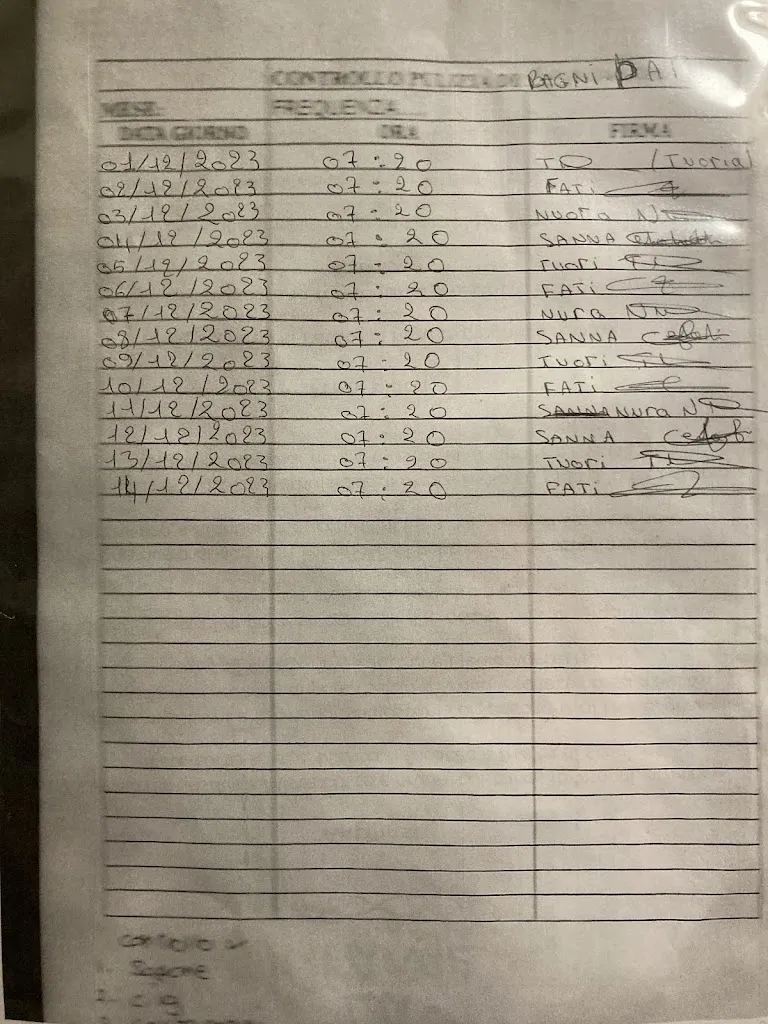 CONTROLLO PULIZIA DI BAGNI
MESE: FREQUENZA
DATA GIORNO ORA FIRMA
01/12/2023 07:20 TD (Tuoria)
02/12/2023 07:20 FATi
03/12/2023 07:20 NUORA
04/12/2023 07:20 SANNA
05/12/2023 07:20 TUORi
06/12/2023 07:20 FATi
07/12/2023 07:20 NURA
08/12/2023 07:20 SANNA
09/12/2023 07:20 TUORi
10/12/2023 07:20 FATi
11/12/2023 07:20 SANNA NURA
12/12/2023 07:20 SANNA
13/12/2023 07:20 TUORi
14/12/2023 07:20 FATi